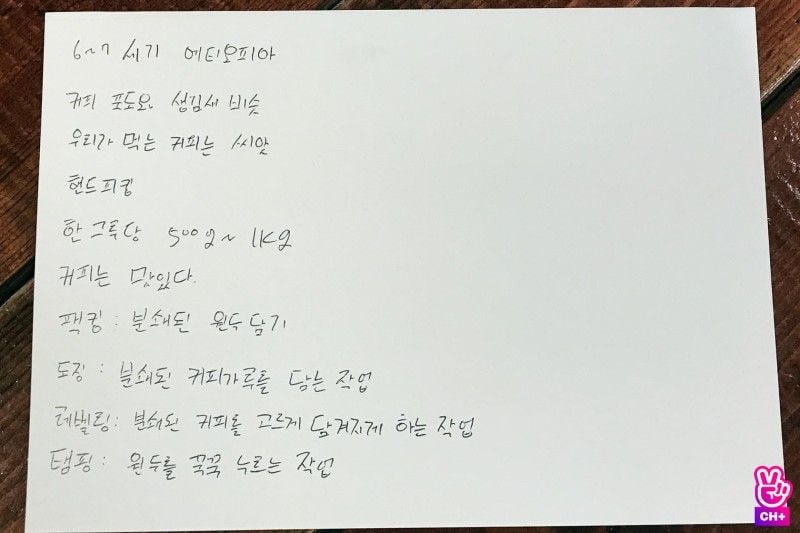 6~7 세기 에티오피아
커피 포도와 생김새 비슷
우리가 먹는 커피는 씨앗
핸드피킹
한 그루당 500g~ 1kg
커피는 맛있다.
팩킹 : 분쇄된 원두 담기
도징 : 분쇄된 커피가루를 담는 작업
레벨링 : 분쇄된 커피를 고르게 담겨지게 하는 작업
탬핑 : 원두를 꾹꾹 누르는 작업
CH+